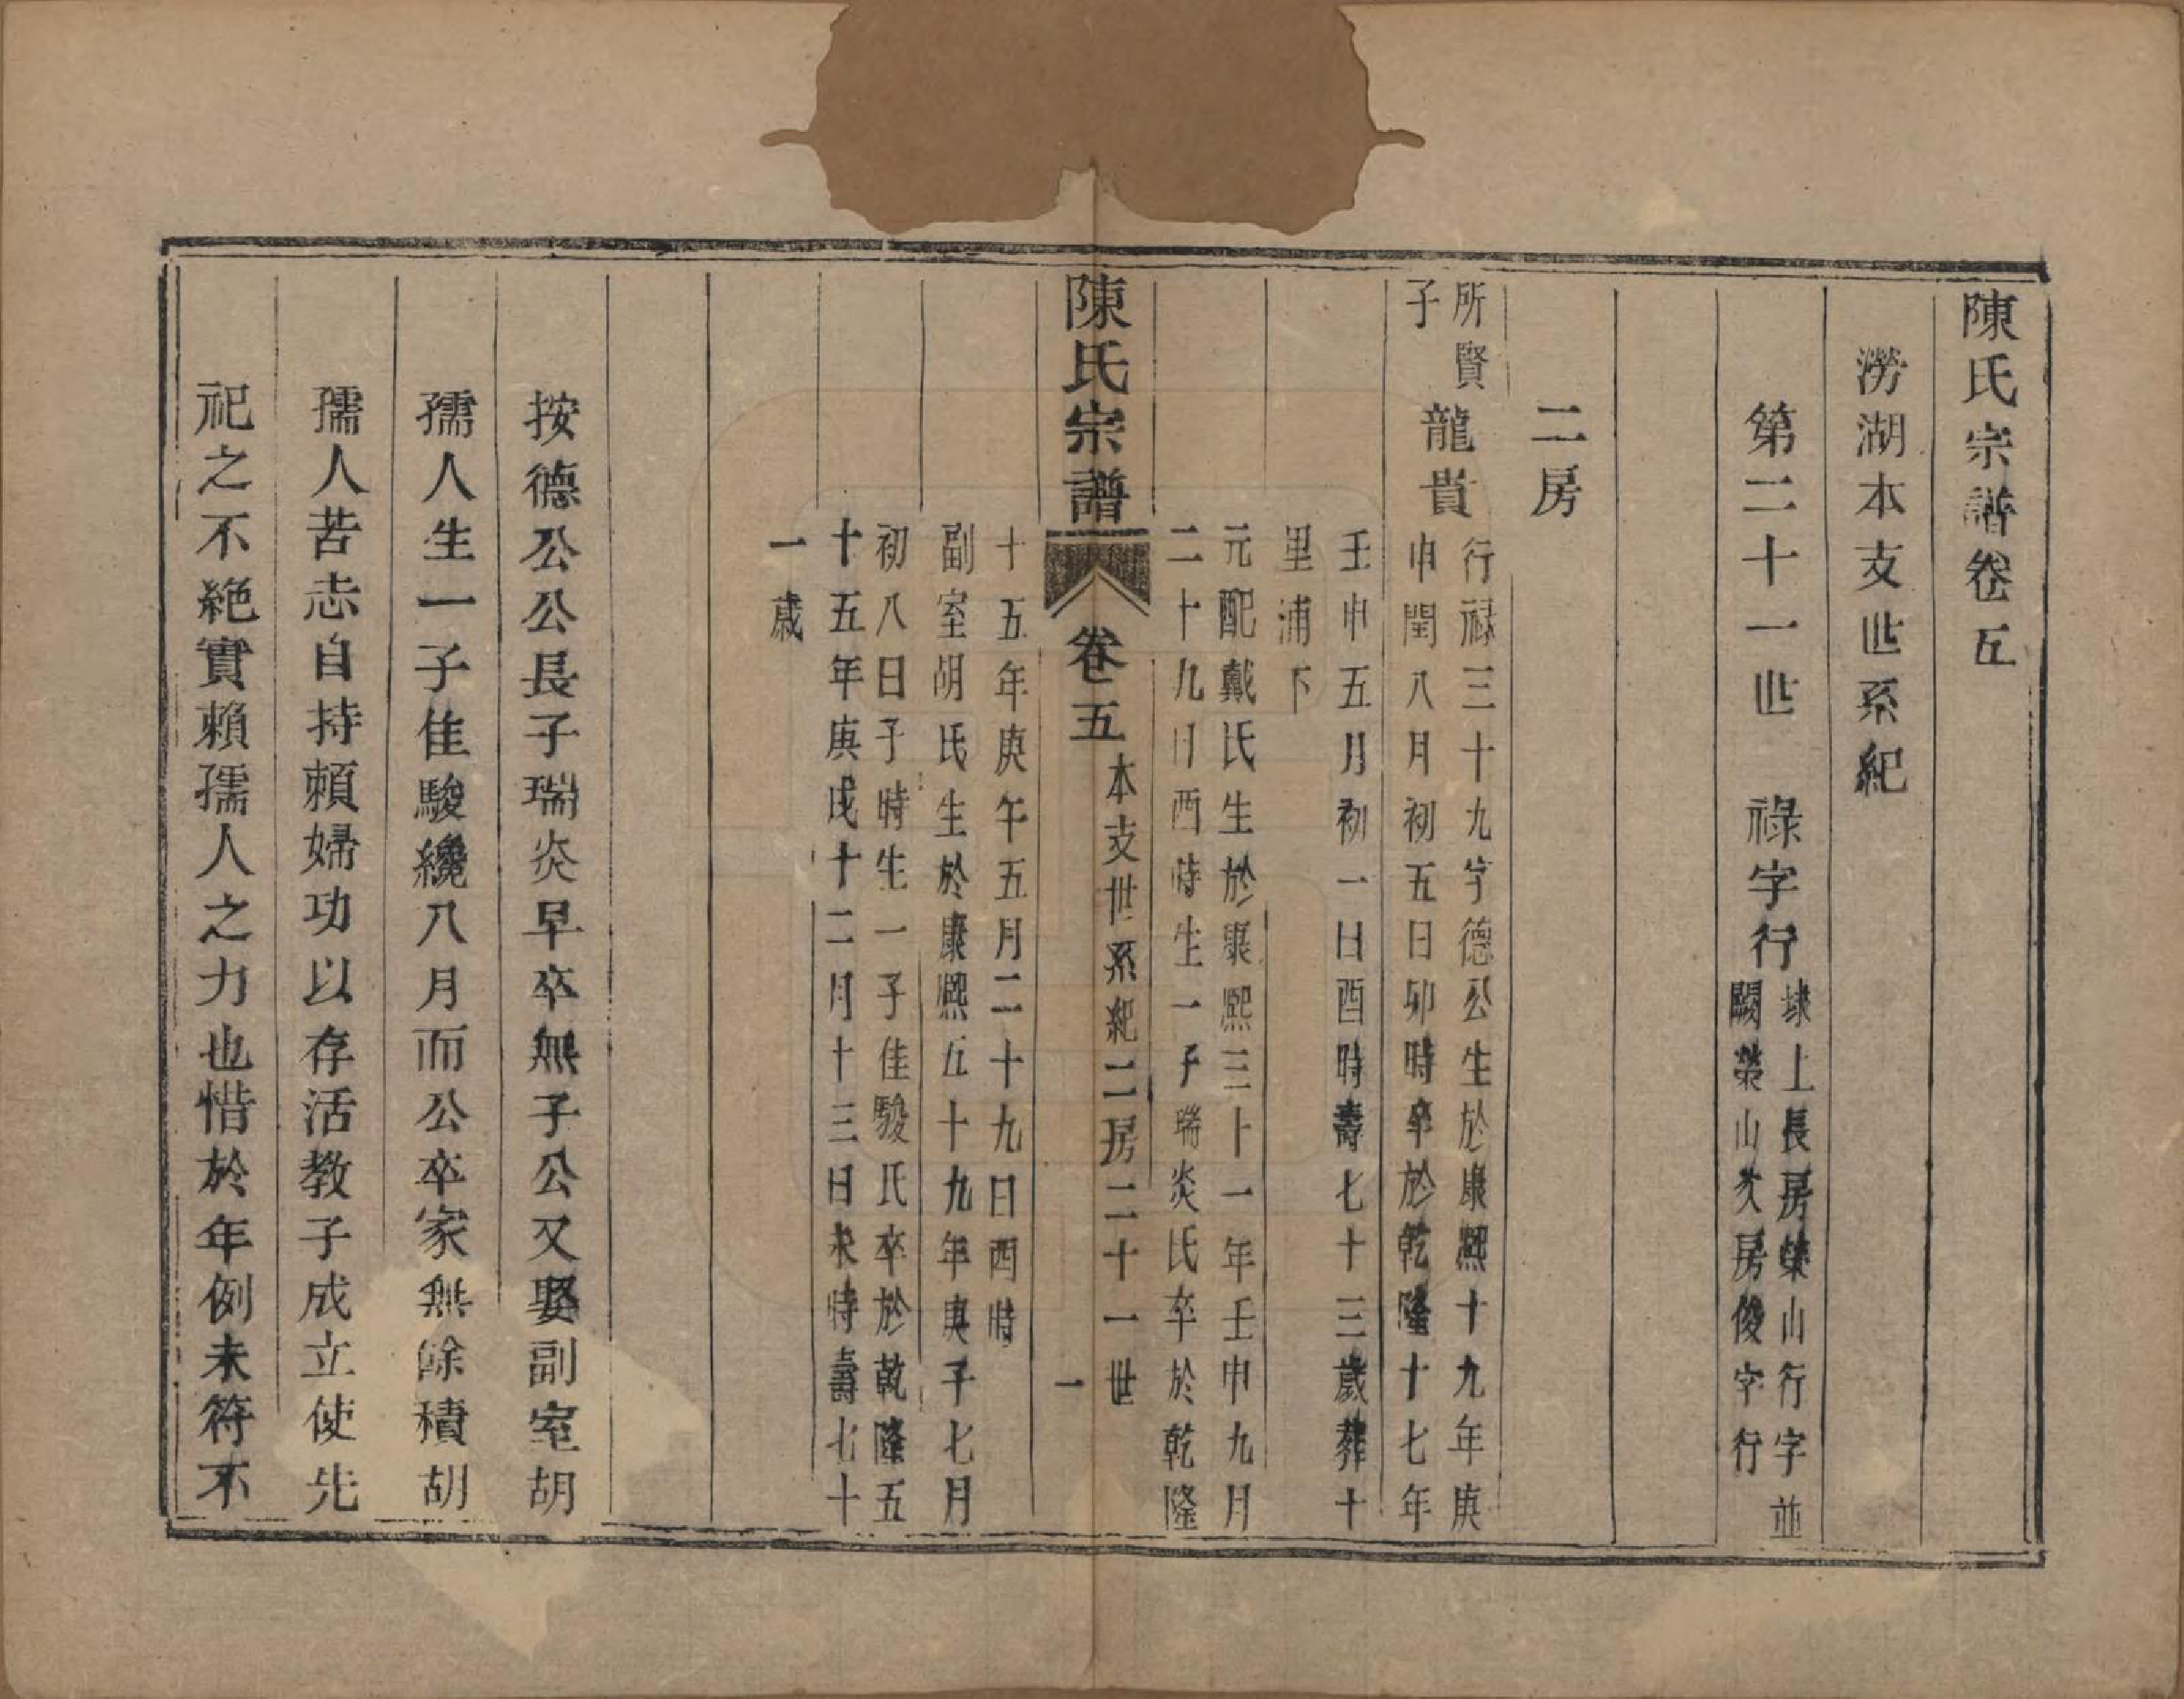 陳氏宗譜卷五
澇湖本支世系紀
第二十一世　祿字行
埭上長房榮山行字並
闕榮山次房俊字行
二房
所賢
子
龍貴
行祿三十九字德公生於康熙十九年庚
申閏八月初五日卯時卒於乾隆十七年
壬申五月初一日酉時壽七十三歲葬十
里浦下
元配戴氏生於康熙三十一年壬申九月
二十九日酉時生一子瑞炎氏卒於乾隆
陳氏宗譜　卷五　本支世系紀二房二十一世　一
十五年庚午五月二十九日酉時
副室胡氏生於康熙五十九年庚子七月
初八日子時生一子佳駿氏卒於乾隆五
十五年庚戌十二月十三日未時壽七十
一歲
按德公公長子瑞炎早卒無子公又娶副室胡
孺人生一子佳駿纔八月而公卒家無餘積胡
孺人苦志自持賴婦功以存活教子成立使先
祀之不絕實賴孺人之力也惜於年例未符不